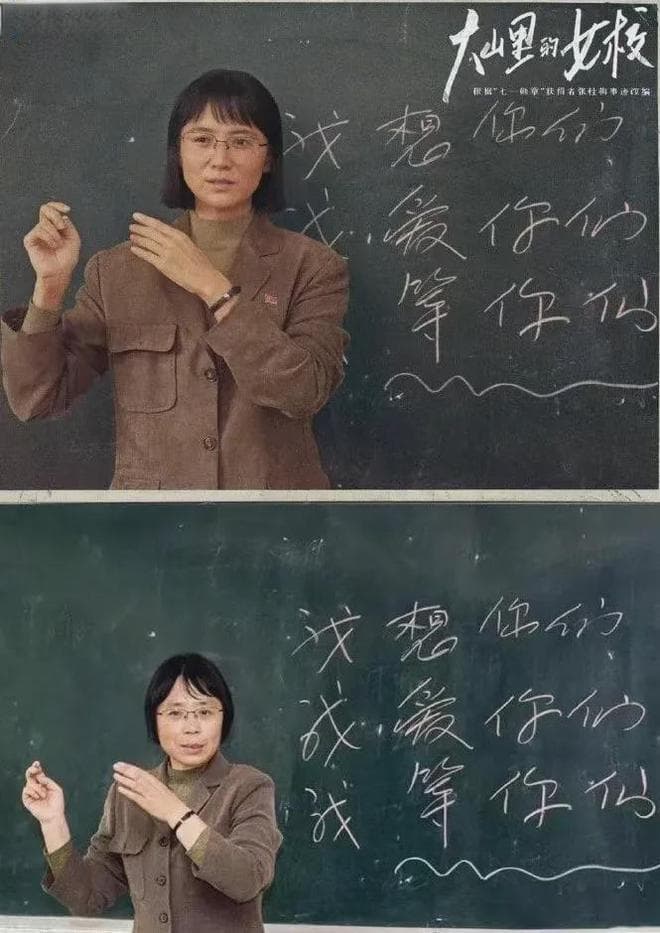 大山里的女校
根据"七一勋章"获得者张桂梅事迹改编
我想你们
我爱你们
等你们
我想你们
我爱你们
我等你们